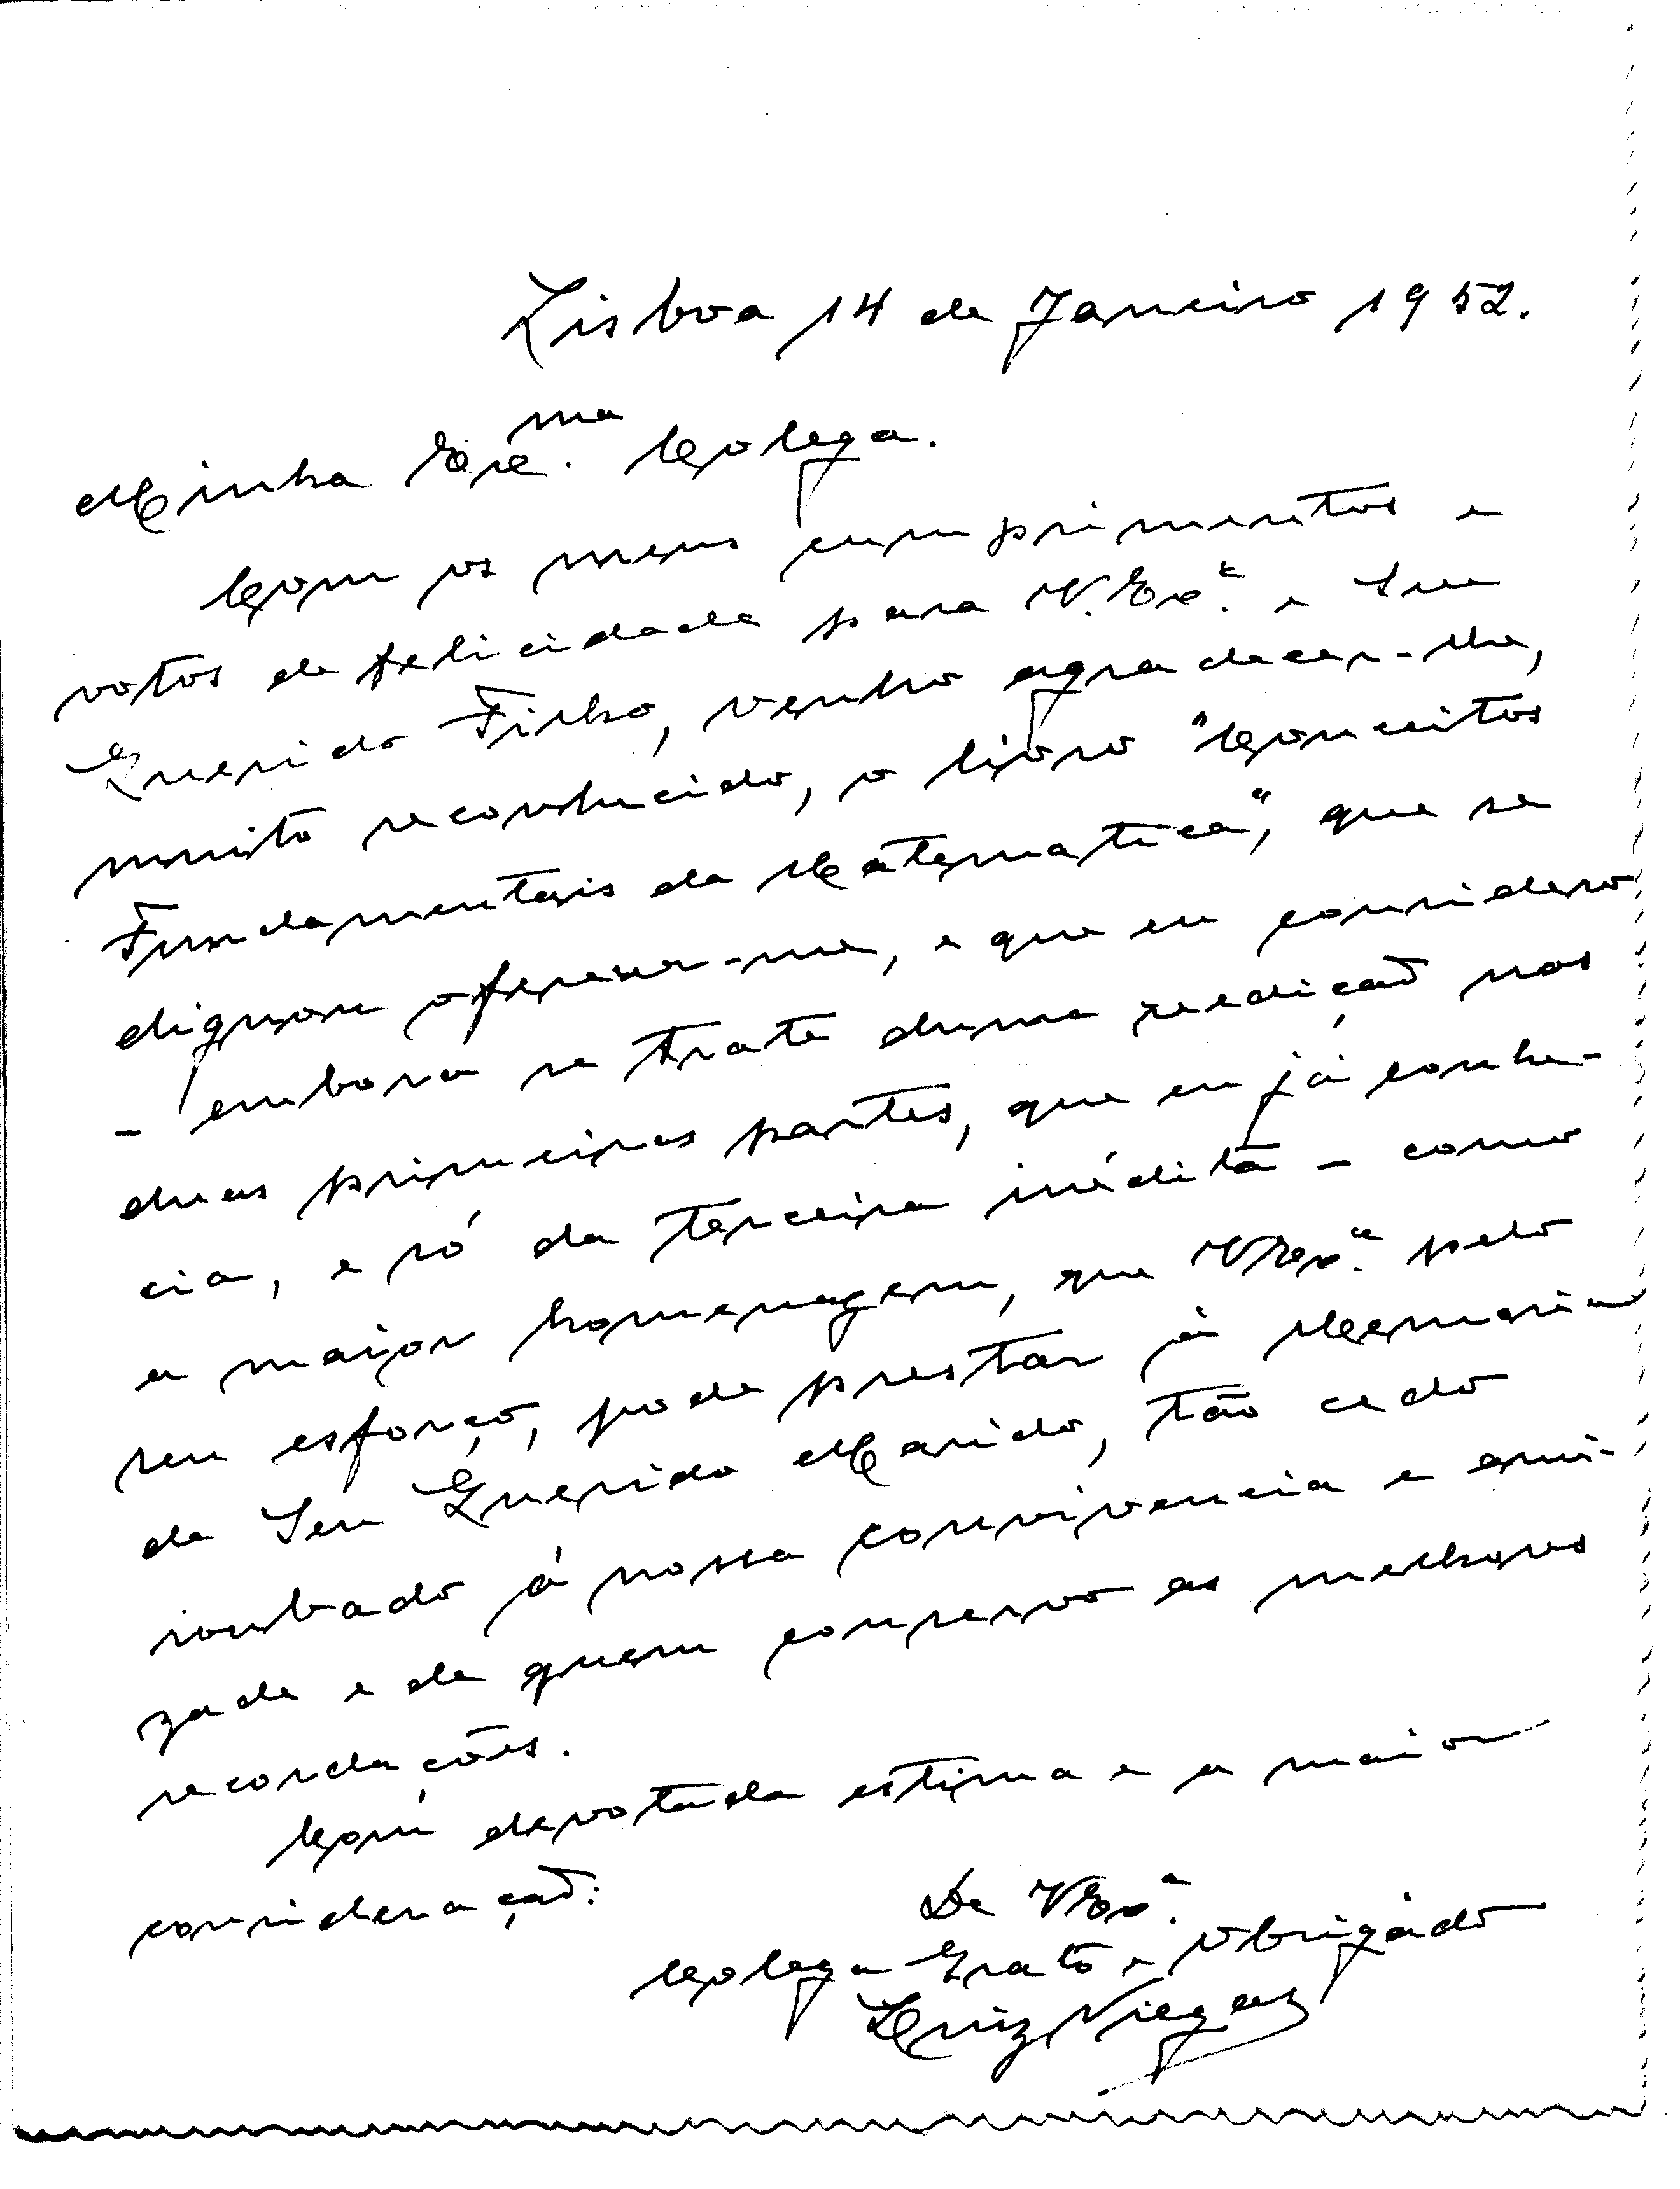 Lisboa 14 de Janeiro 1952.
Minha Exma. Colega.
Com os meus cumprimentos e
votos de felicidade para V. Exª. e Seu
Querido Filho, venho agradecer-lhe,
muito reconhecido, o livro "Conceitos
Fundamentais da Matematica", que se
dignou oferecer-me, e que eu considero
- embora se trate duma reedição nas
duas primeiras partes, que eu já conhe-
cia, e só da terceira inédita - como
a maior homenagem, que V Exª. pelo
seu esforço, pode prestar á Memoria
de Seu Querido Marido, tão cedo
roubado á nossa convivencia e ami-
zade e de quem conservo as melhores
recordações.
Com devotada estima e a maior
consideração:
De V Exª.
Colega Grato e Obrigado
Luiz Viegas